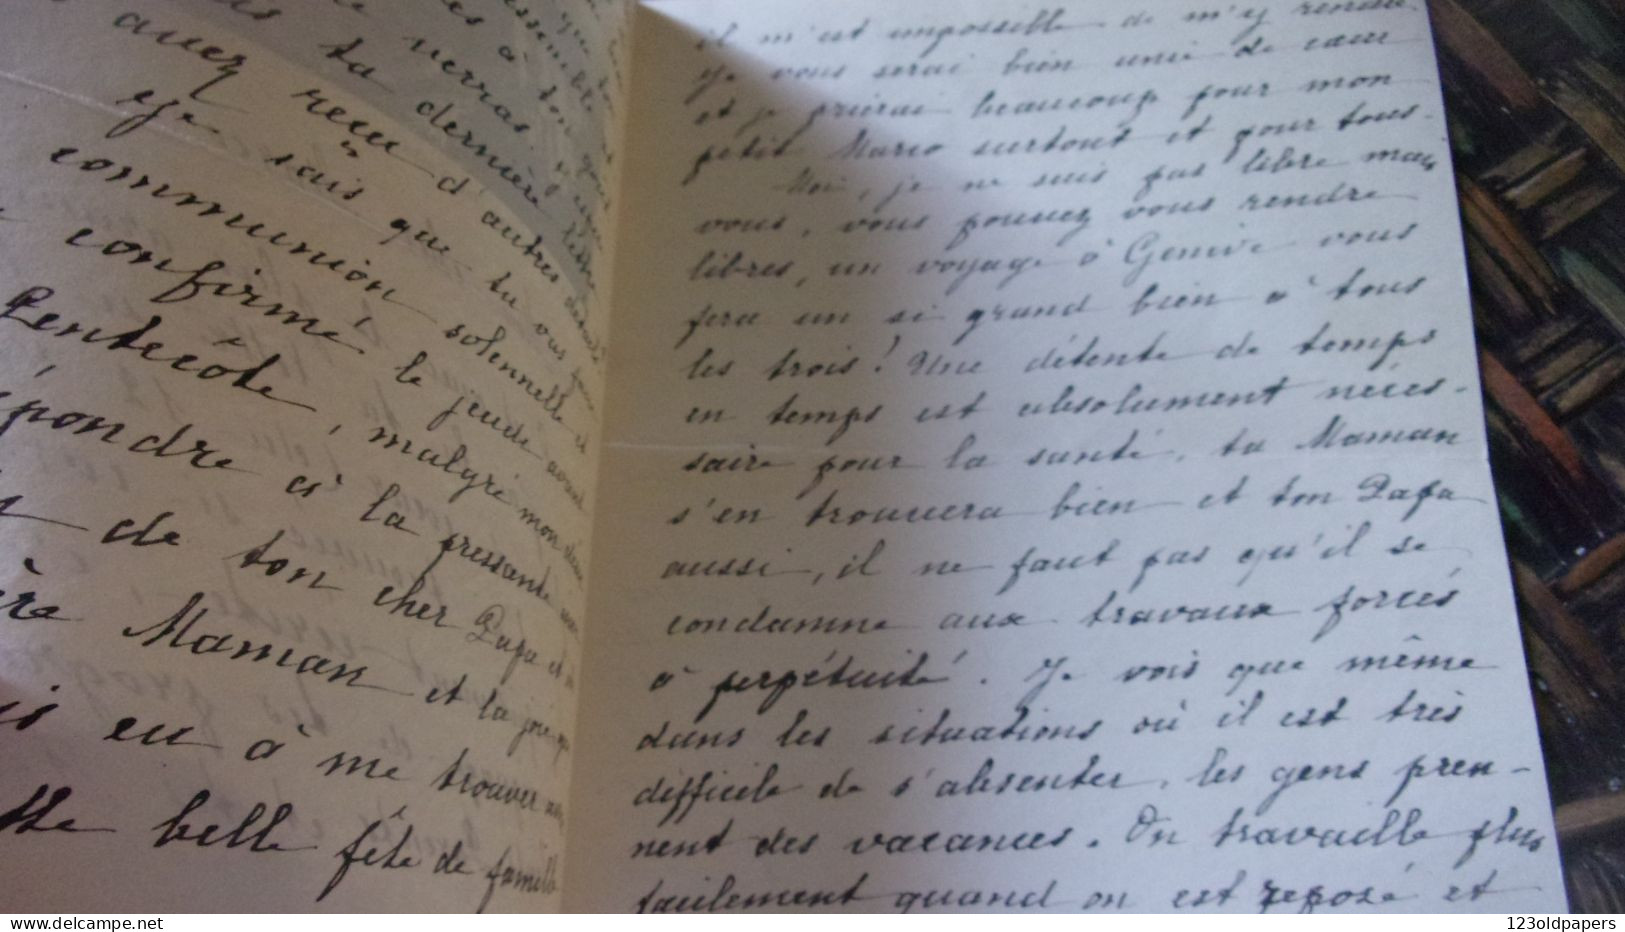 avez reçu d'autres
ta dernière lettre
Je sais que tu vas faire
communion solennelle et
confirmé le jeudi avant
Pentecôte, malgré mon désir
répondre à la pressante
de ton cher Papa et
Maman et la joie que
eu à me trouver
belle fête de famille
il m'est impossible de m'y rendre.
Je vous serai bien unie de cœur
et je prierai beaucoup pour mon
petit Marco surtout et pour tous.
Moi, je ne suis pas libre mais
vous, vous pouvez vous rendre
libres, un voyage à Genève vous
fera un si grand bien à tous
les trois! Une détente de temps
en temps est absolument néces-
saire pour la santé, ta Maman
s'en trouvera bien et ton Papa
aussi, il ne faut pas qu'il se
condamne aux travaux forcés
à perpétuité. Je vois que même
dans les situations où il est très
difficile de s'absenter, les gens pren-
nent des vacances. On travaille plus
facilement quand on est reposé et
123oldpapers